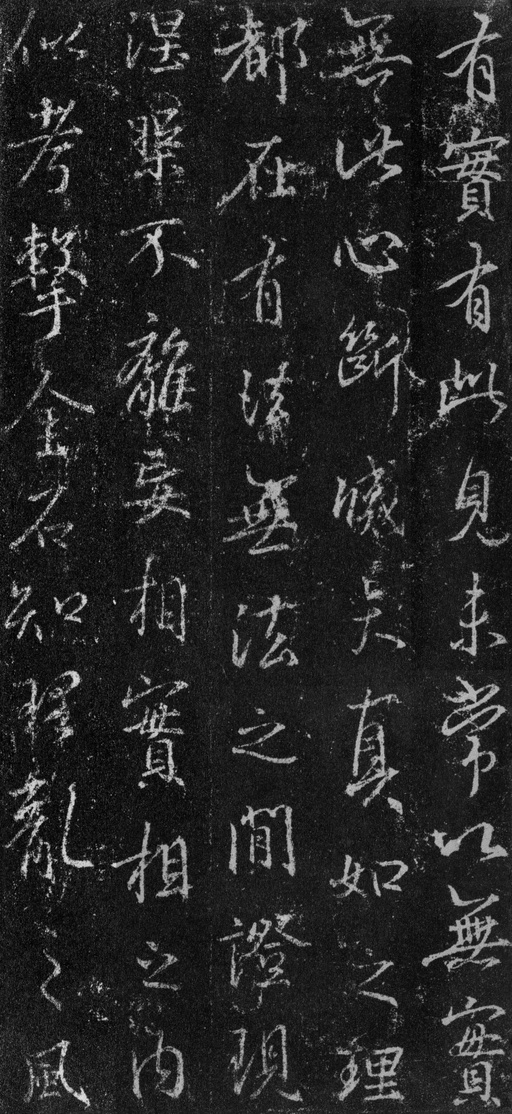 有實有此見未常以無實
無此心斷滅矣真如之理
都在有法無法之間證現
涅槃不離妄相實相之内
似考擊金石知理亂之風